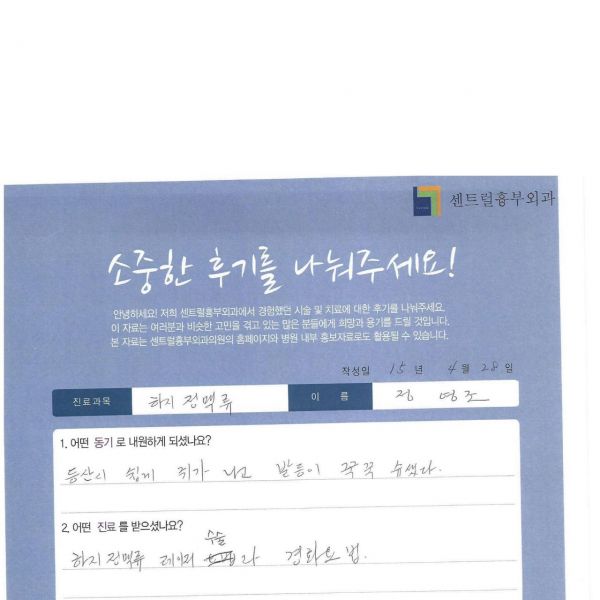 센트럴흉부외과
소중한 후기를 나눠주세요!
안녕하세요! 저희 센트럴흉부외과에서 경험했던 시술 및 치료에 대한 후기를 나눠주세요.
이 자료는 여러분과 비슷한 고민을 겪고 있는 많은 분들에게 희망과 용기를 드릴 것입니다.
본 자료는 센트럴흉부외과의원의 홈페이지와 병원 내부 홍보자료로도 활용될 수 있습니다.
작성일 15 년 4 월 28 일
진료과목 하지정맥류 이 름 정 영조
1. 어떤 동기로 내원하게 되셨나요?
등산시 쉽게 쥐가 나고 발등이 꾹꾹 쑤셨다.
2. 어떤 진료를 받으셨나요?
수술
하지정맥류 레이저 라 경화요법.